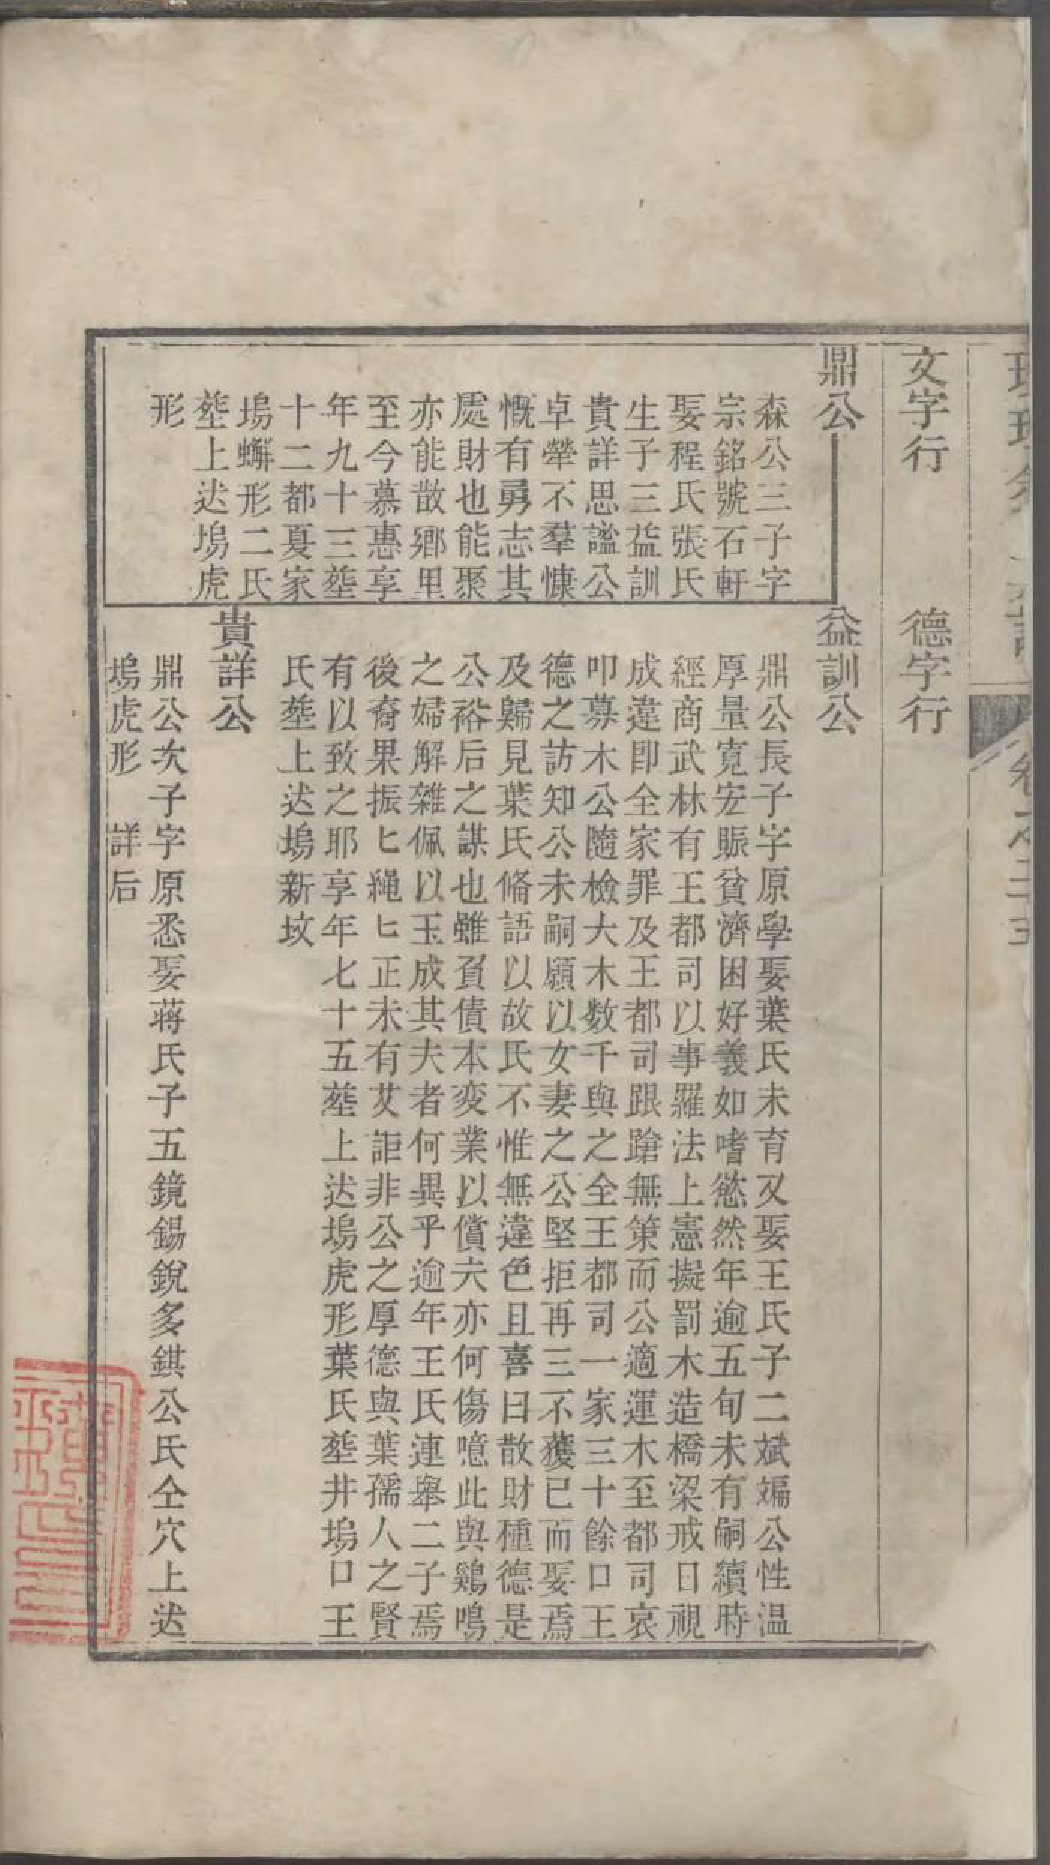 文字行
德字行
鼎公
森公三子字
宗銘號石軒
娶程氏張氏
生子三益訓
貴詳思謐公
卓犖不羣慷
慨有勇志其
處財也能聚
亦能散鄉里
至今慕惠享
年九十三塟
十二都夏家
塢蠏形二氏
塟上迖塢虎
形
益訓公
鼎公長子字原學娶葉氏未育又娶王氏子二斌斒公性温
厚量寬宏賑貧濟困好義如嗜慾然年逾五旬未有嗣續時
經商武林有王都司以事羅法上憲擬罰木造橋梁戒日視
成違卽全家罪及王都司踉蹌無策而公適運木至都司哀
叩募木公隨檢大木数千與之全王都司一家三十餘口王
德之訪知公未嗣願以女妻之公堅拒再三不獲已而娶焉
及歸見葉氏俻語以故氏不惟無違色且喜曰散財種德是
公裕后之謀也雖負債本変業以償夫亦何傷噫此與鷄鳴
之婦解雜佩以玉成其夫者何異乎逾年王氏連舉二子焉
後裔果振匕繩匕正未有艾詎非公之厚德與葉孺人之賢
有以致之耶享年七十五塟上迖塢虎形葉氏塟井塢口王
氏塟上迖塢新坟
貴詳公
鼎公次子字原悉娶蒋氏子五鏡錫銳多錤公氏仝穴上迖
塢虎形 詳后